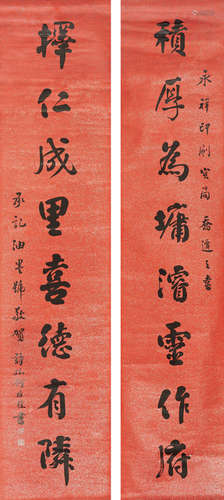 永祥印刷寶局喬遷之喜
積厚為墉濬靈作府
擇仁成里喜德有隣
承記油墨號敬賀